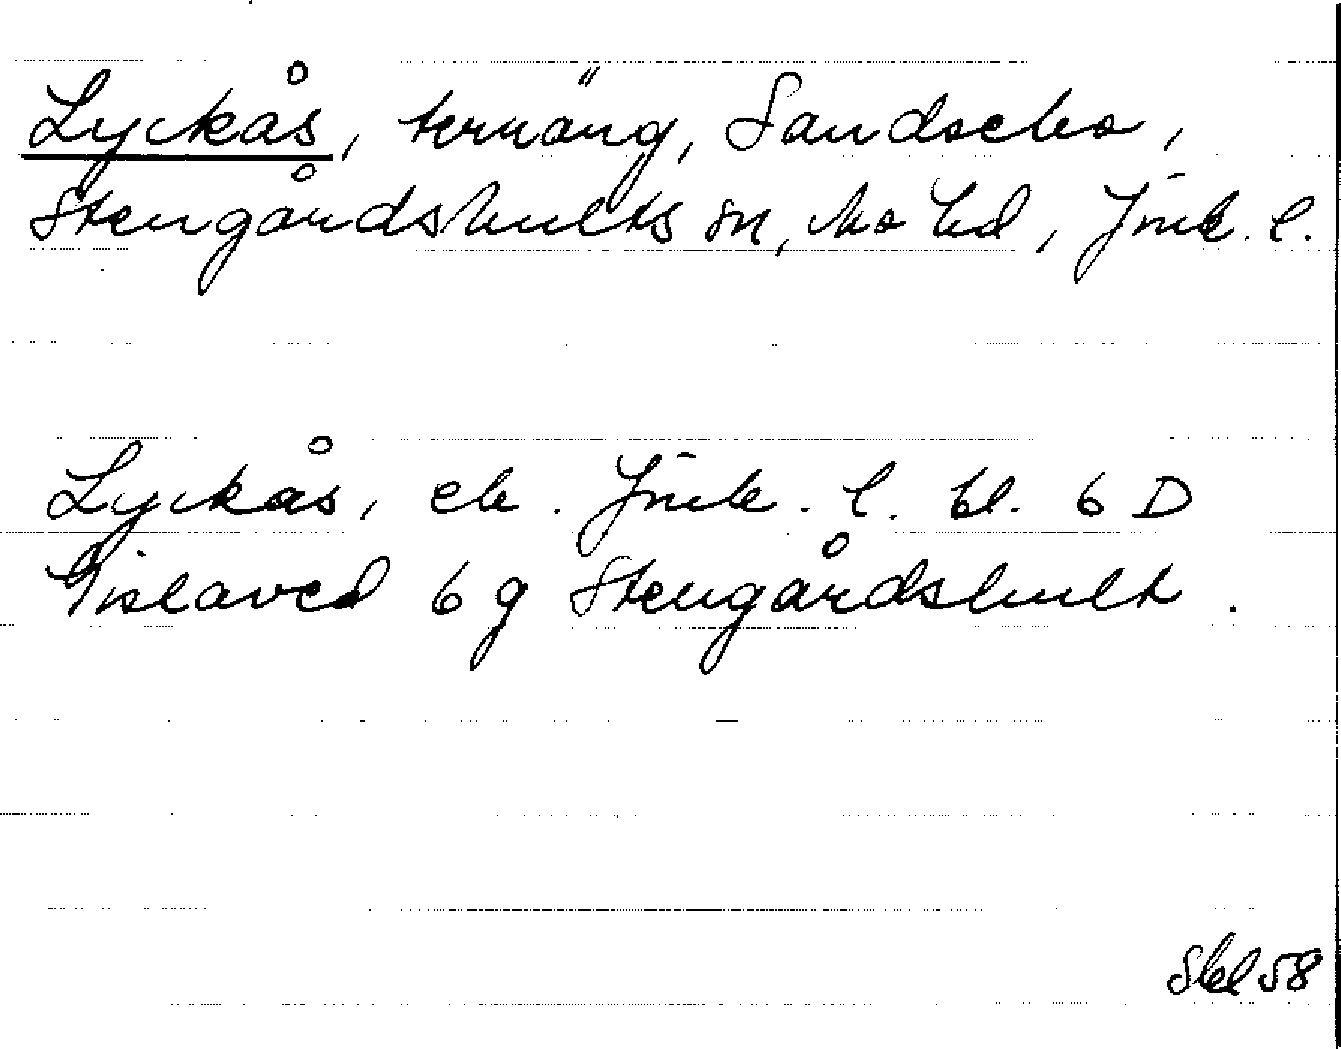 Lyckås, ternäng, Sandsebo,
Stengårdshults sn, Mo hd, Jönk. l.
Lyckås, ek. Jönk. l. bl. 6 D
Gislaved 6 g Stengårdshult.
Skl 58